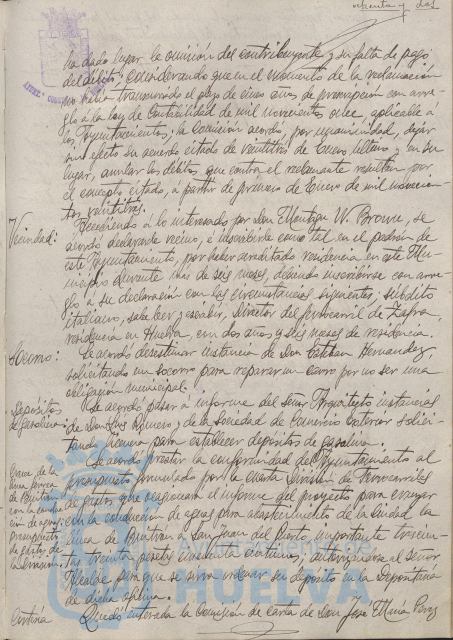 ochenta y dos
ha dado lugar la omisión del contribuyente y su falta de pago
del débito; considerando que en el momento de la reclamación
no había transcurrido el plazo de cinco años de prescripción con arre-
glo a la Ley de Contabilidad de mil novecientos once, aplicable a
los Ayuntamientos, la Comisión acordó, por unanimidad, dejar
sin efecto su acuerdo citado de veintitrés de Enero último y en su
lugar, anular los débitos que contra el reclamante resultan por
el concepto citado, a partir de primero de Enero de mil novecien-
tos veintitrés.
Vecindad: Accediendo á lo interesado por Don Montagu W. Brown, se
acordó declararle vecino, é inscribirle como tal en el padrón de
este Ayuntamiento, por haber acreditado residencia en este Mu-
nicipio durante más de seis meses, debiendo inscribirse con arre-
glo á su declaración con las circunstancias siguientes: súbdito
italiano, sabe leer y escribir, Director del ferrocarril de Zafra,
residencia en Huelva, con dos años y seis meses de residencia.
Socorro: Se acordó desestimar instancia de Don Esteban Hernandez
solicitando un socorro para reparar un carro por no ser una
obligación municipal.
Depósitos de gasolina: Se acordó pasar á informe del señor Arquitecto instancias
de Don Luis Romero y de la Sociedad de Comercio Exterior solici-
tando licencia para establecer depósitos de gasolina.
Cruce de la línea férrea de Buitrón con la conduc- ción de aguas, presupuesto de gastos de
Se acordó prestar la conformidad del Ayuntamiento al
presupuesto formulado por la Cuarta División de Ferrocarriles
de gastos que ocasionará el informe del proyecto para cruzar
con la conducción de aguas para abastecimiento de la Ciudad la
línea de Buitrón a San Juan del Puerto, importante trescien-
tas treinta pesetas cincuenta céntimos, autorizándose al señor
Alcalde para que se sirva ordenar su depósito en la Depositaría
de dicha oficina.
Quedó enterada la Comisión de carta de Don José María Perez
AYUNTAMIENTO DE
HUELVA